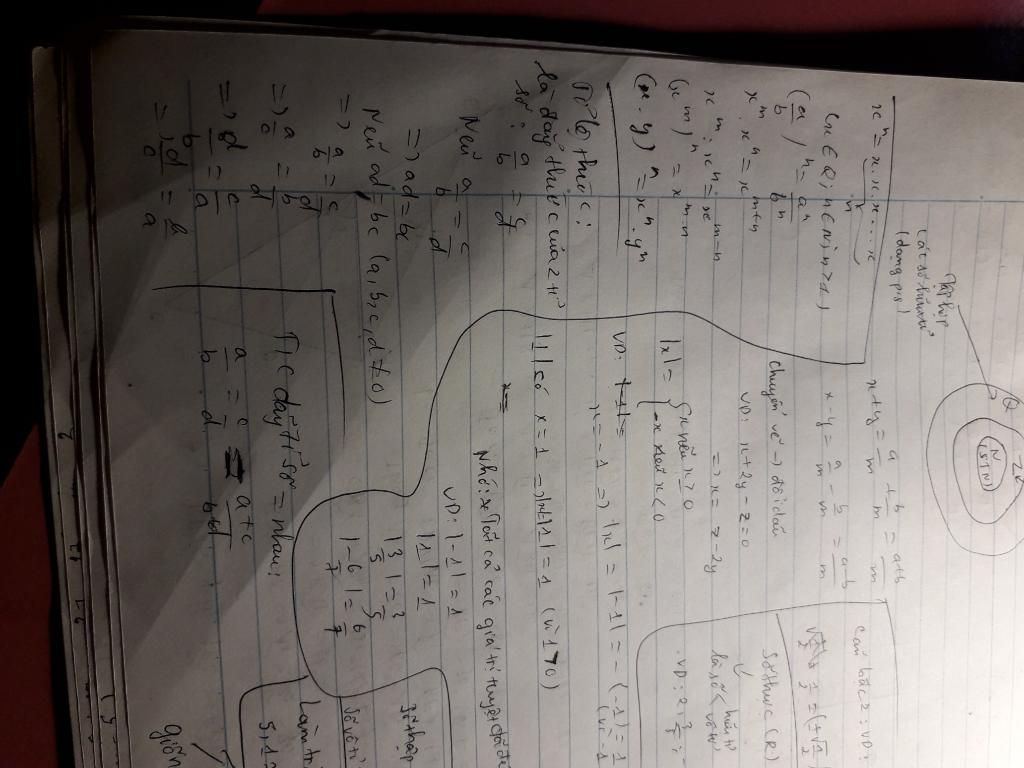 Tập hợp
các số hữu tỉ
(dạng p/s)
Q
Z
N
(STN)
xⁿ = x . x . x ... x
n
(x ∈ Q; n ∈ N; n > 1)
(a/b)ⁿ = aⁿ/bⁿ
xᵐ . xⁿ = xᵐ⁺ⁿ
xᵐ : xⁿ = xᵐ⁻ⁿ
(xᵐ)ⁿ = xᵐ·ⁿ
(x . y)ⁿ = xⁿ . yⁿ
Tỉ lệ thức:
là đẳng thức của 2 tỉ
số: a/b = c/d
Nếu a/b = c/d
=> ad = bc
Nếu ad = bc (a, b, c, d ≠ 0)
=> a/b = c/d
=> a/c = b/d
=> d/b = c/a
=> d/c = b/a
x + y = a/m + b/m = a+b/m
x - y = a/m - b/m = a-b/m
chuyển vế -> đổi dấu
VD: x + 2y - z = 0
=> x = z - 2y
|x| = { x nếu x ≥ 0
-x nếu x < 0
VD:
x = -1 => |x| = |-1| = -(-1) = 1
(vì -1
|1| có x = 1 => |x| = |1| = 1 (vì 1 > 0)
Nhớ: tất cả các giá trị tuyệt đối đề
VD: |-1| = 1
|1| = 1
|3/5| = 3/5
|-6/7| = 6/7
T/c dãy tỉ số = nhau:
a/b = c/d = a+c/b+d
căn bậc 2: VD:
Số thực (R)
là số < hữu tỉ
vô tỉ
VD: 2,
Số thập
Số vô tỉ
Làm tr
5,12
giốn